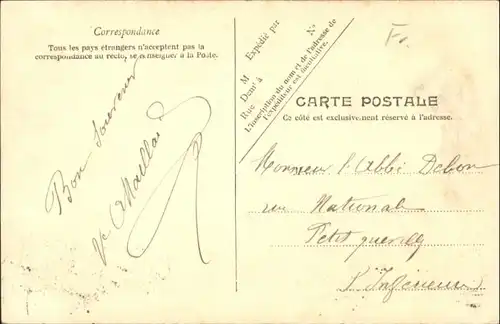 Correspondance
Tous les pays étrangers n'acceptent pas la
correspondance au recto, se renseigner à la Poste.
Bon Souvenir
Expédié par
M
Demt à
Rue
N°
L'inscription du nom et de l'adresse de
l'expéditeur est facultative.
Fr.
CARTE POSTALE
Ce côté est exclusivement réservé à l'adresse.
Monsieur l'Abbé
rue National
Petit Quevilly
S. Inférieure